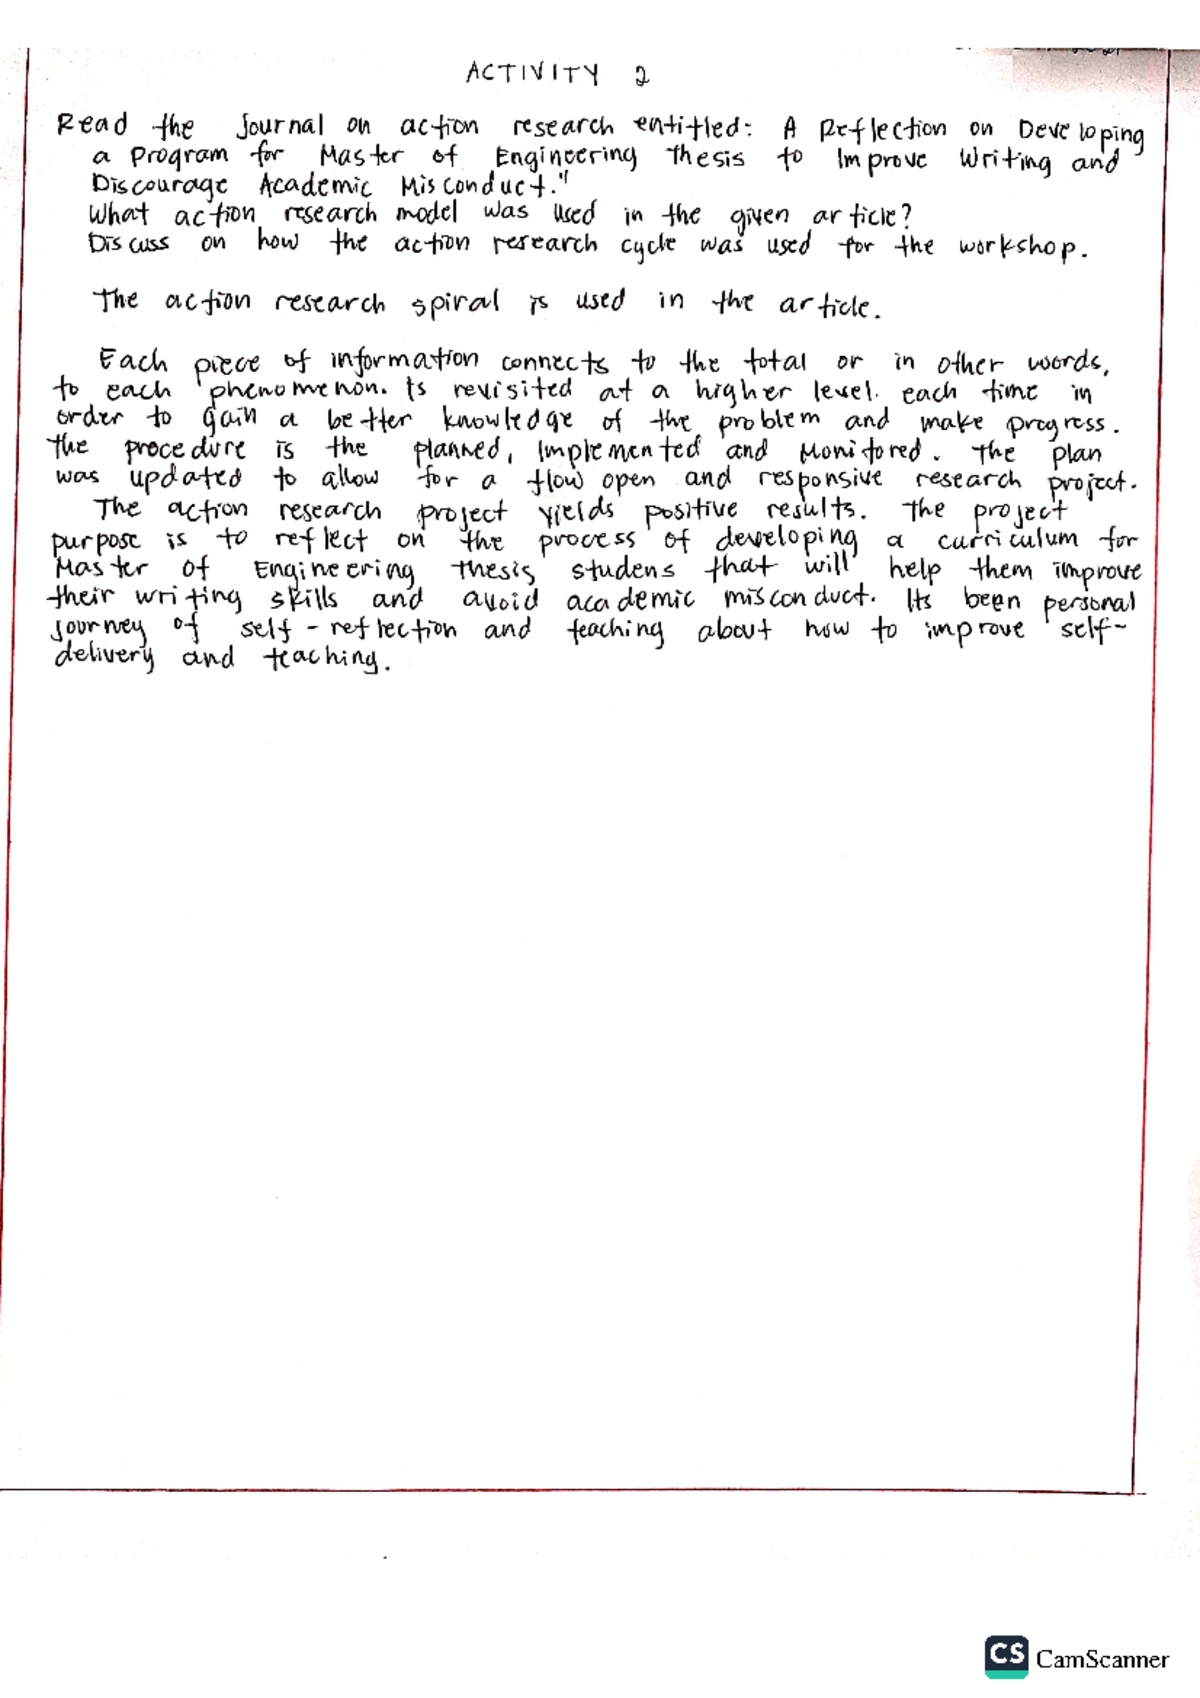 ACTIVITY 2
Read the Journal on action research entitled: A Reflection on Developing
a Program for Master of Engineering Thesis to Improve Writing and
Discourage Academic Misconduct."
What action research model was used in the given article?
Discuss on how the action research cycle was used for the workshop.
The action research spiral is used in the article.
Each piece of information connects to the total or in other words,
to each phenomenon. Is revisited at a higher level. each time in
order to gain a better knowledge of the problem and make progress.
The procedure is the planned, Implemented and Monitored. The plan
was updated to allow for a flow open and responsive research project.
The action research project yields positive results. The project
purpose is to reflect on the process of developing a curriculum for
Master of Engineering thesis studens that will help them improve
their writing skills and avoid academic misconduct. Its been personal
journey of self-reflection and teaching about how to improve self-
delivery and teaching.
CS CamScanner